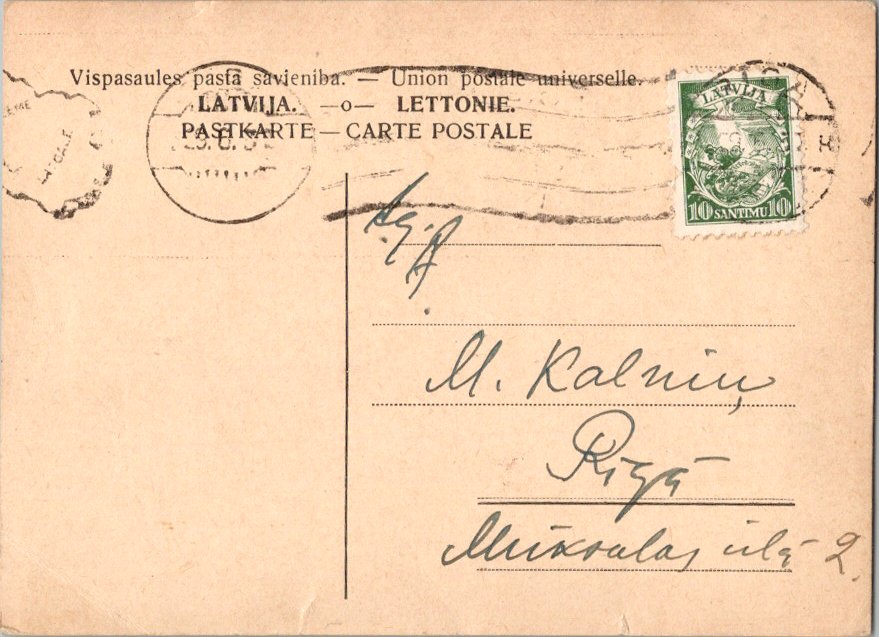 Vispasaules pasta savienība. — Union postale universelle.
LATVIJA. —o— LETTONIE.
PASTKARTE — CARTE POSTALE
LATVIJA
10 SANTIMU 10
M. Kalniņ
Rīgā
ielā 2.